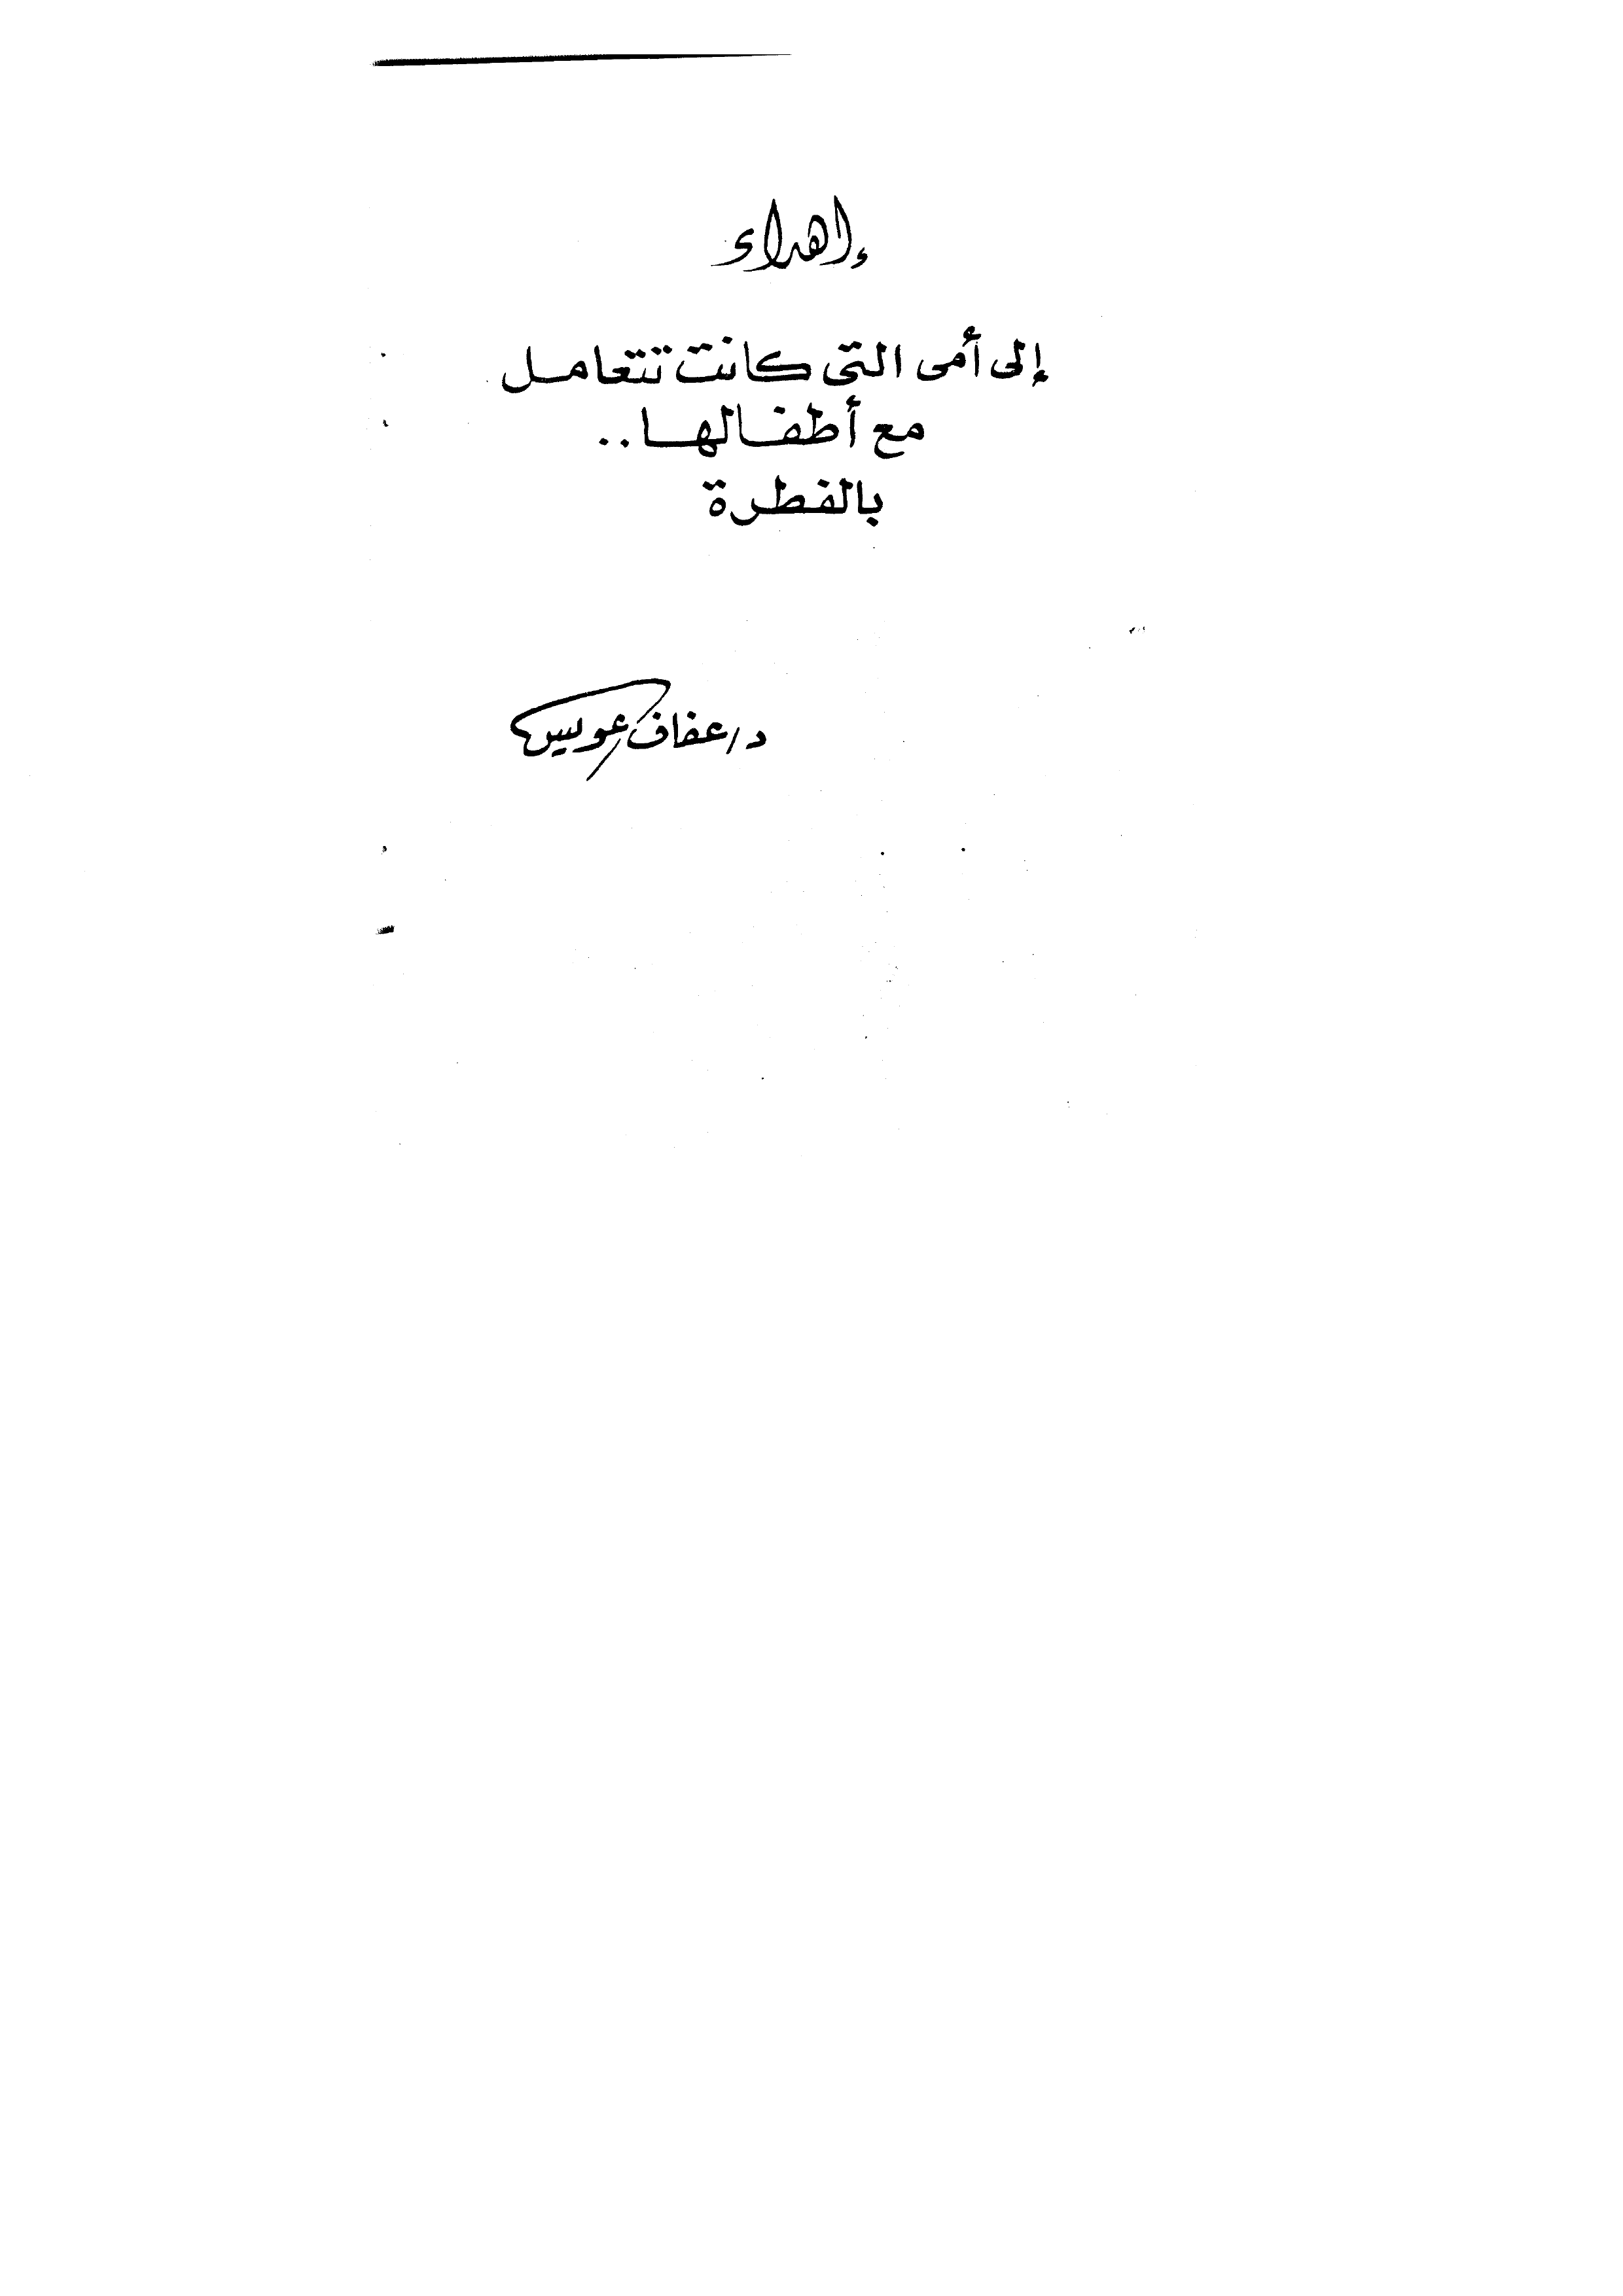 إهداء
إلى أمى التى كانت تتعامل
مع أطفالها..
بالفطرة
د/عفاف عويس